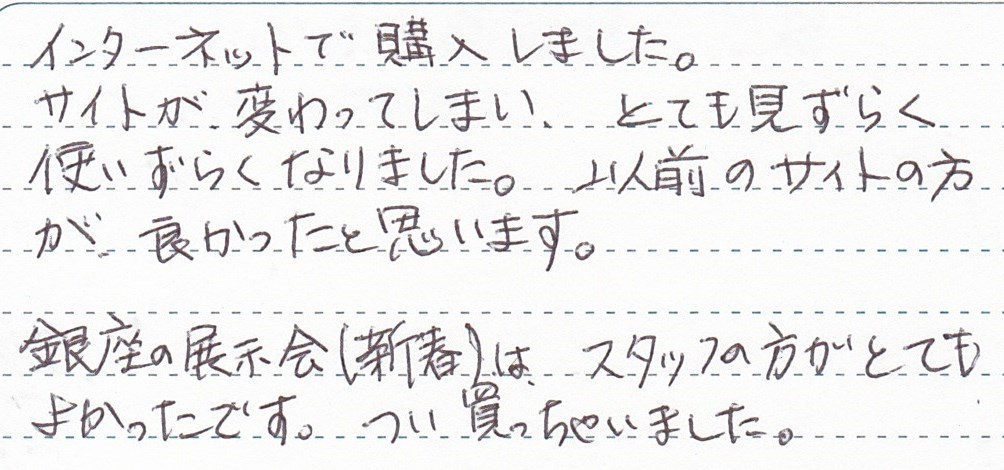 インターネットで購入しました。
サイトが変わってしまい、とても見ずらく
使いずらくなりました。以前のサイトの方
が良かったと思います。
銀座の展示会(新春)は、スタッフの方がとても
よかったです。つい買っちゃいました。